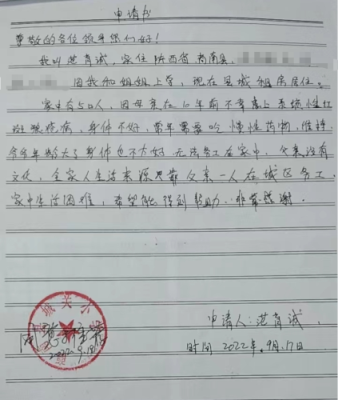 申请书
尊敬的各位领导你们好!
我叫范育诚,家住陕西省商南县
因我和姐姐上学,现在县城租房居住。
家中有5口人,因母亲在10年前不幸患上系统性红
斑狼疮病,身体不好,常年需要吃慢性药物,维持
爷爷年龄大了身体也不太好无法务工在家中,父亲没有
文化,全家人生活来源只靠父亲一人在城区务工,
家中生活困难,希望能得到帮助,非常感谢.
申请人:范育诚
时间2022年.9月.17日
城关小
2022.9.18